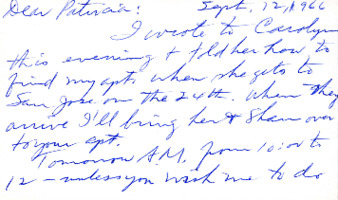 Dear Patricia: Sept. 12, 1966
I wrote to Carolyn
this evening & told her how to
find my apt. when she gets to
San Jose on the 24th. When they
arrive I'll bring her & Shan over
to your apt.
Tomorrow A.M. from 10:00 to
12 — unless you wish me to do